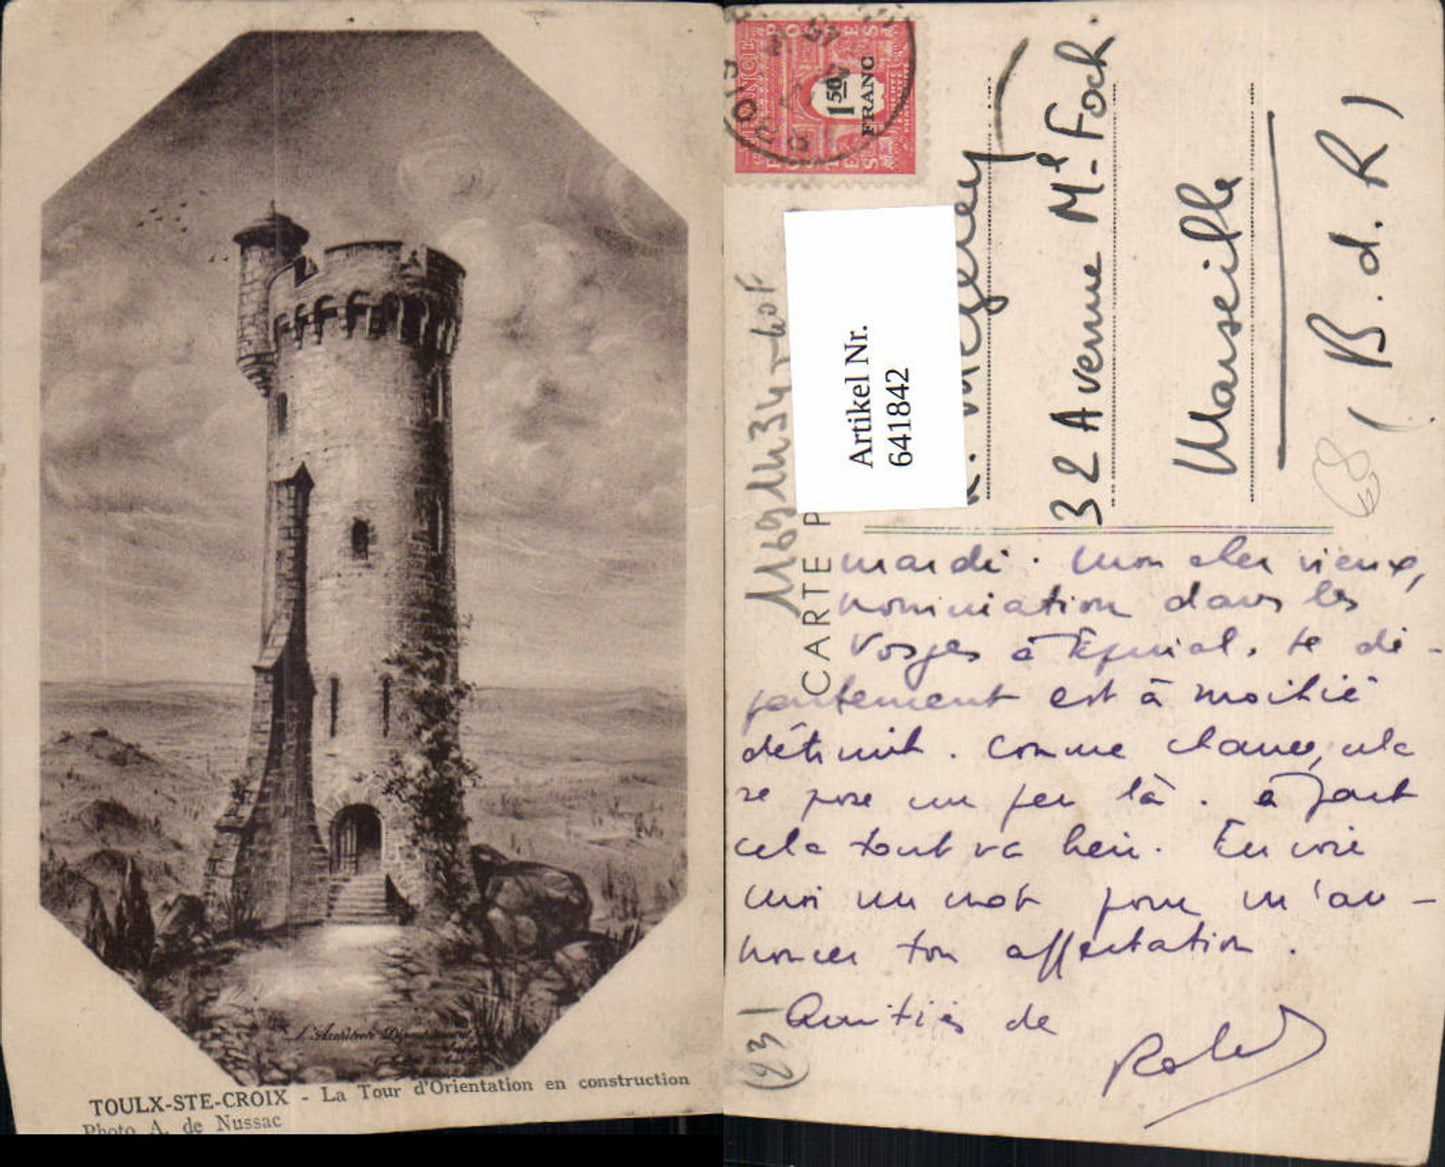 TOULX-STE-CROIX - La Tour d'Orientation en construction
Photo A. de Nussac
L'Architecte Départemental
FRANCE
POSTES
1 50
FRANC
Artikel Nr.
641842
32 Avenue Ml Foch.
Marseille
(B. d. R)
68
CARTE P
mardi. Mon cher vieux,
nomination dans les
Vosges à Epinal. Le dé-
partement est à moitié
détruit. Comme chance, cela
se pose un peu là. à part
cela tout va bien. Envoie
moi un mot pour m'an-
noncer ton affectation.
Amitiés de
(23)